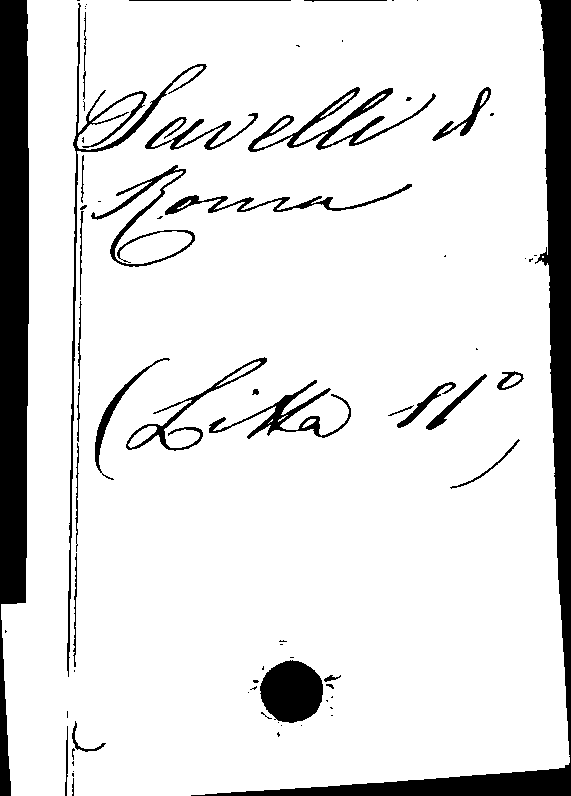 Savelli d.
Roma
(Litta